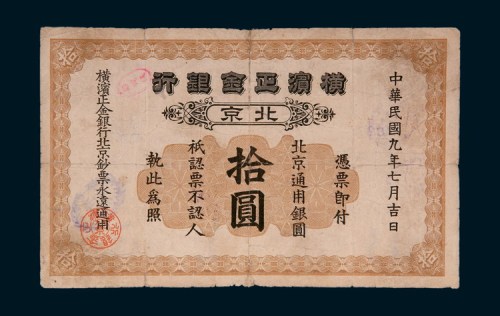 橫濱正金銀行
北京
中華民國九年七月吉日
憑票即付
北京通用銀圓
拾圓
祇認票不認人
執此為照
橫濱正金銀行北京鈔票永遠通用
拾
拾
拾
拾